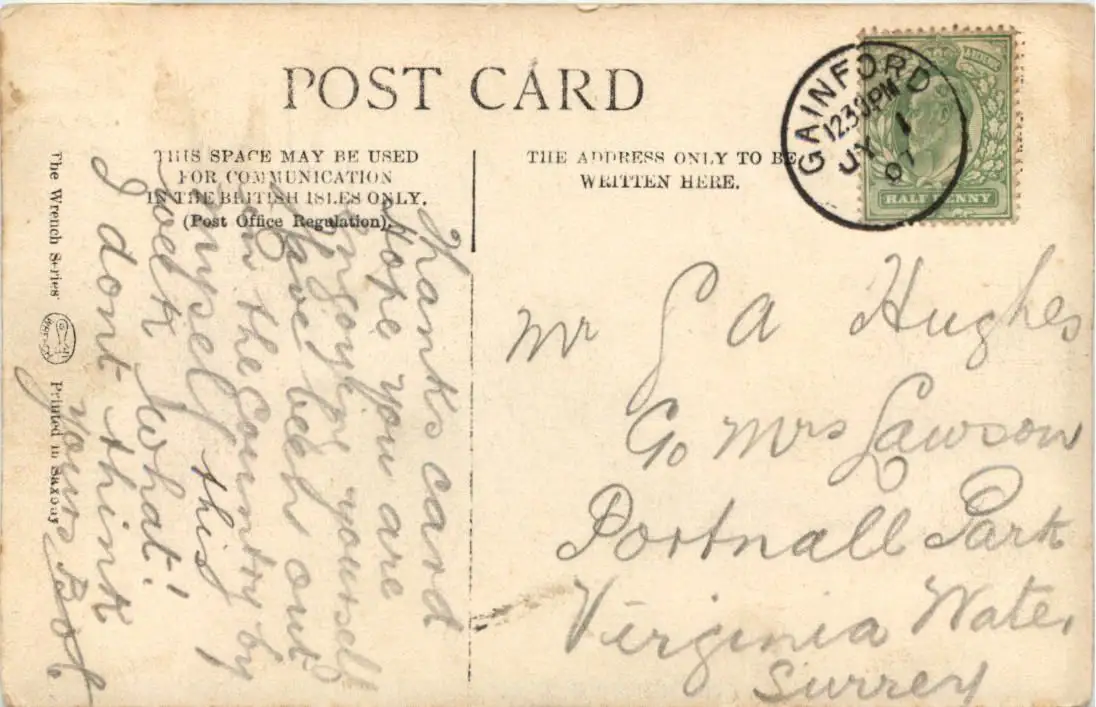 POST CARD
THIS SPACE MAY BE USED
FOR COMMUNICATION
IN THE BRITISH ISLES ONLY.
(Post Office Regulation).
THE ADDRESS ONLY TO BE
WRITTEN HERE.
GAINFORD
12.30PM
JY 1
07
HALFPENNY
The Wrench Series
Printed in Saxony
Thanks card
Hope you are
enjoying yourself
Have been out
in the Country by
myself this
week What!
I dont think
yours Bob
Mr G A Hughes
C/o Mrs Lawson
Portnall Park
Virginia Water
Surrey